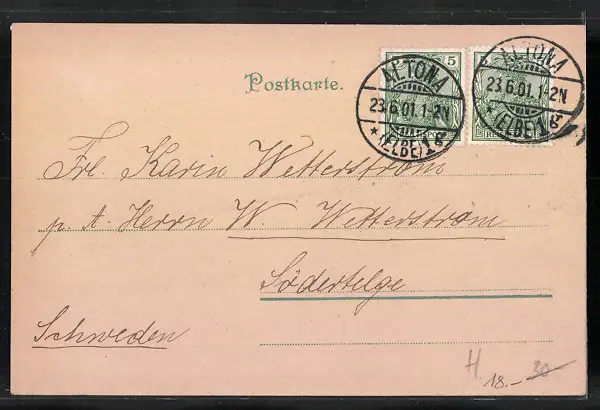 Postkarte.
5
ALTONA
23.6.01.1-2N
* (ELBE) 1 g
ALTONA
23.6.01.1-2N
* (ELBE) 1 g
Frl. Karin Wetterström
p. A. Herrn W. Wetterström
Södertelge
Schweden
H 18.- 30